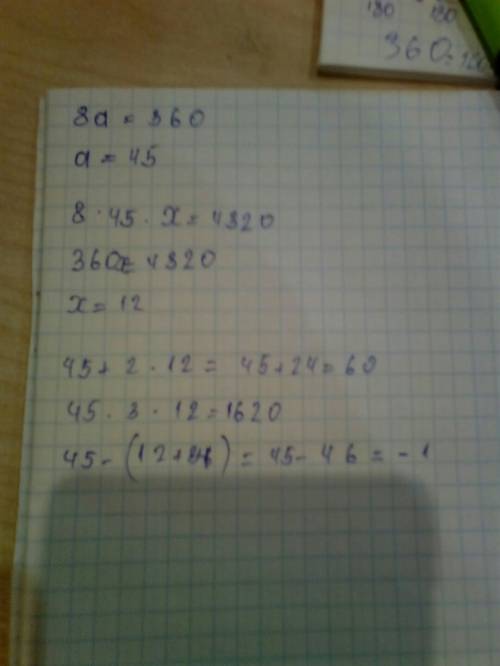 180 180
360 = 180
8a = 360
a = 45
8 · 45 · x = 4320
360x = 4320
x = 12
45 + 2 · 12 = 45 + 24 = 60
45 · 3 · 12 = 1620
45 - (12 + 34) = 45 - 46 = -1